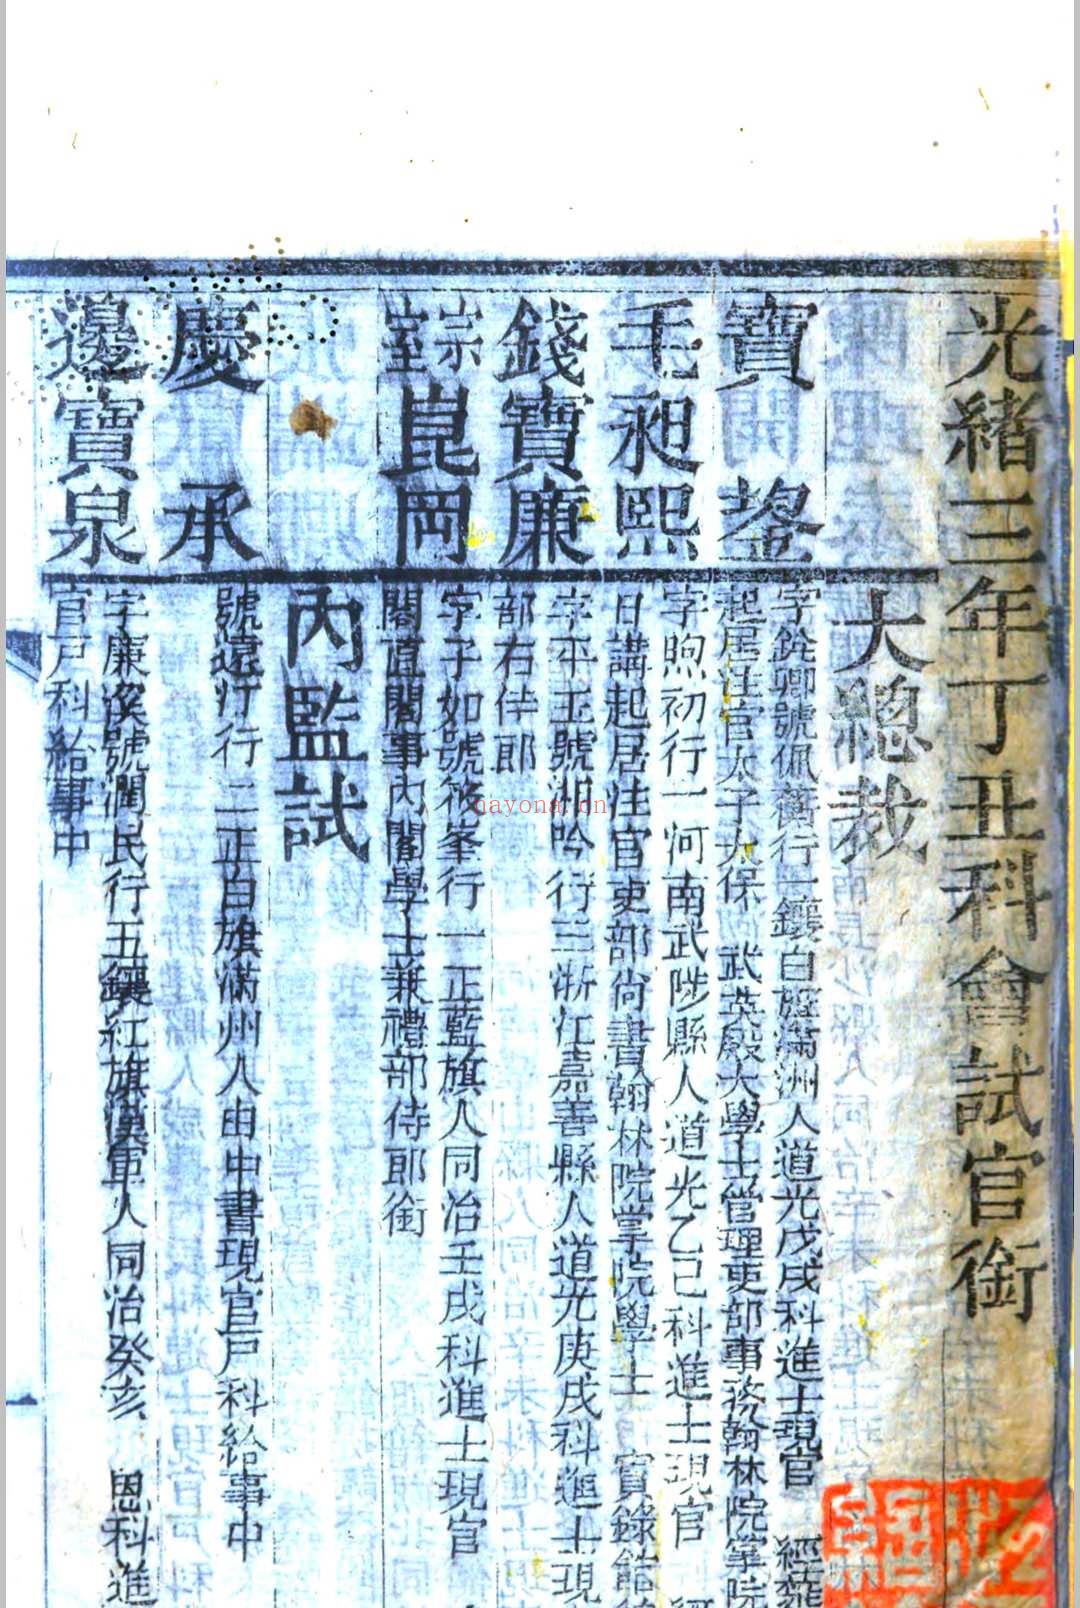 光緒三年丁丑科會試官銜
大總裁
寶鋆
字銳卿號佩蘅行一鑲白旗滿洲人道光戊戌科進士現官 經筵
起居注官太子太保 武英殿大學士管理吏部事務翰林院掌院
毛昶熙
字煦初行一河南武陟縣人道光乙巳科進士現官 經
日講起居注官吏部尚書翰林院掌院學士 實錄館
錢寶廉
字平玉號湘吟行三浙江嘉善縣人道光庚戌科進士現
部右侍郎
宗室崑岡
字子如號筱峯行一正藍旗人同治壬戌科進士現官
閣直閣事內閣學士兼禮部侍郎銜
內監試
慶承
號遠行行二正白旗滿州人由中書現官戶科給事中
邊寶泉
字廉溪號潤民行五鑲紅旗漢軍人同治癸亥 恩科進
官戶科給事中
nayona.cn